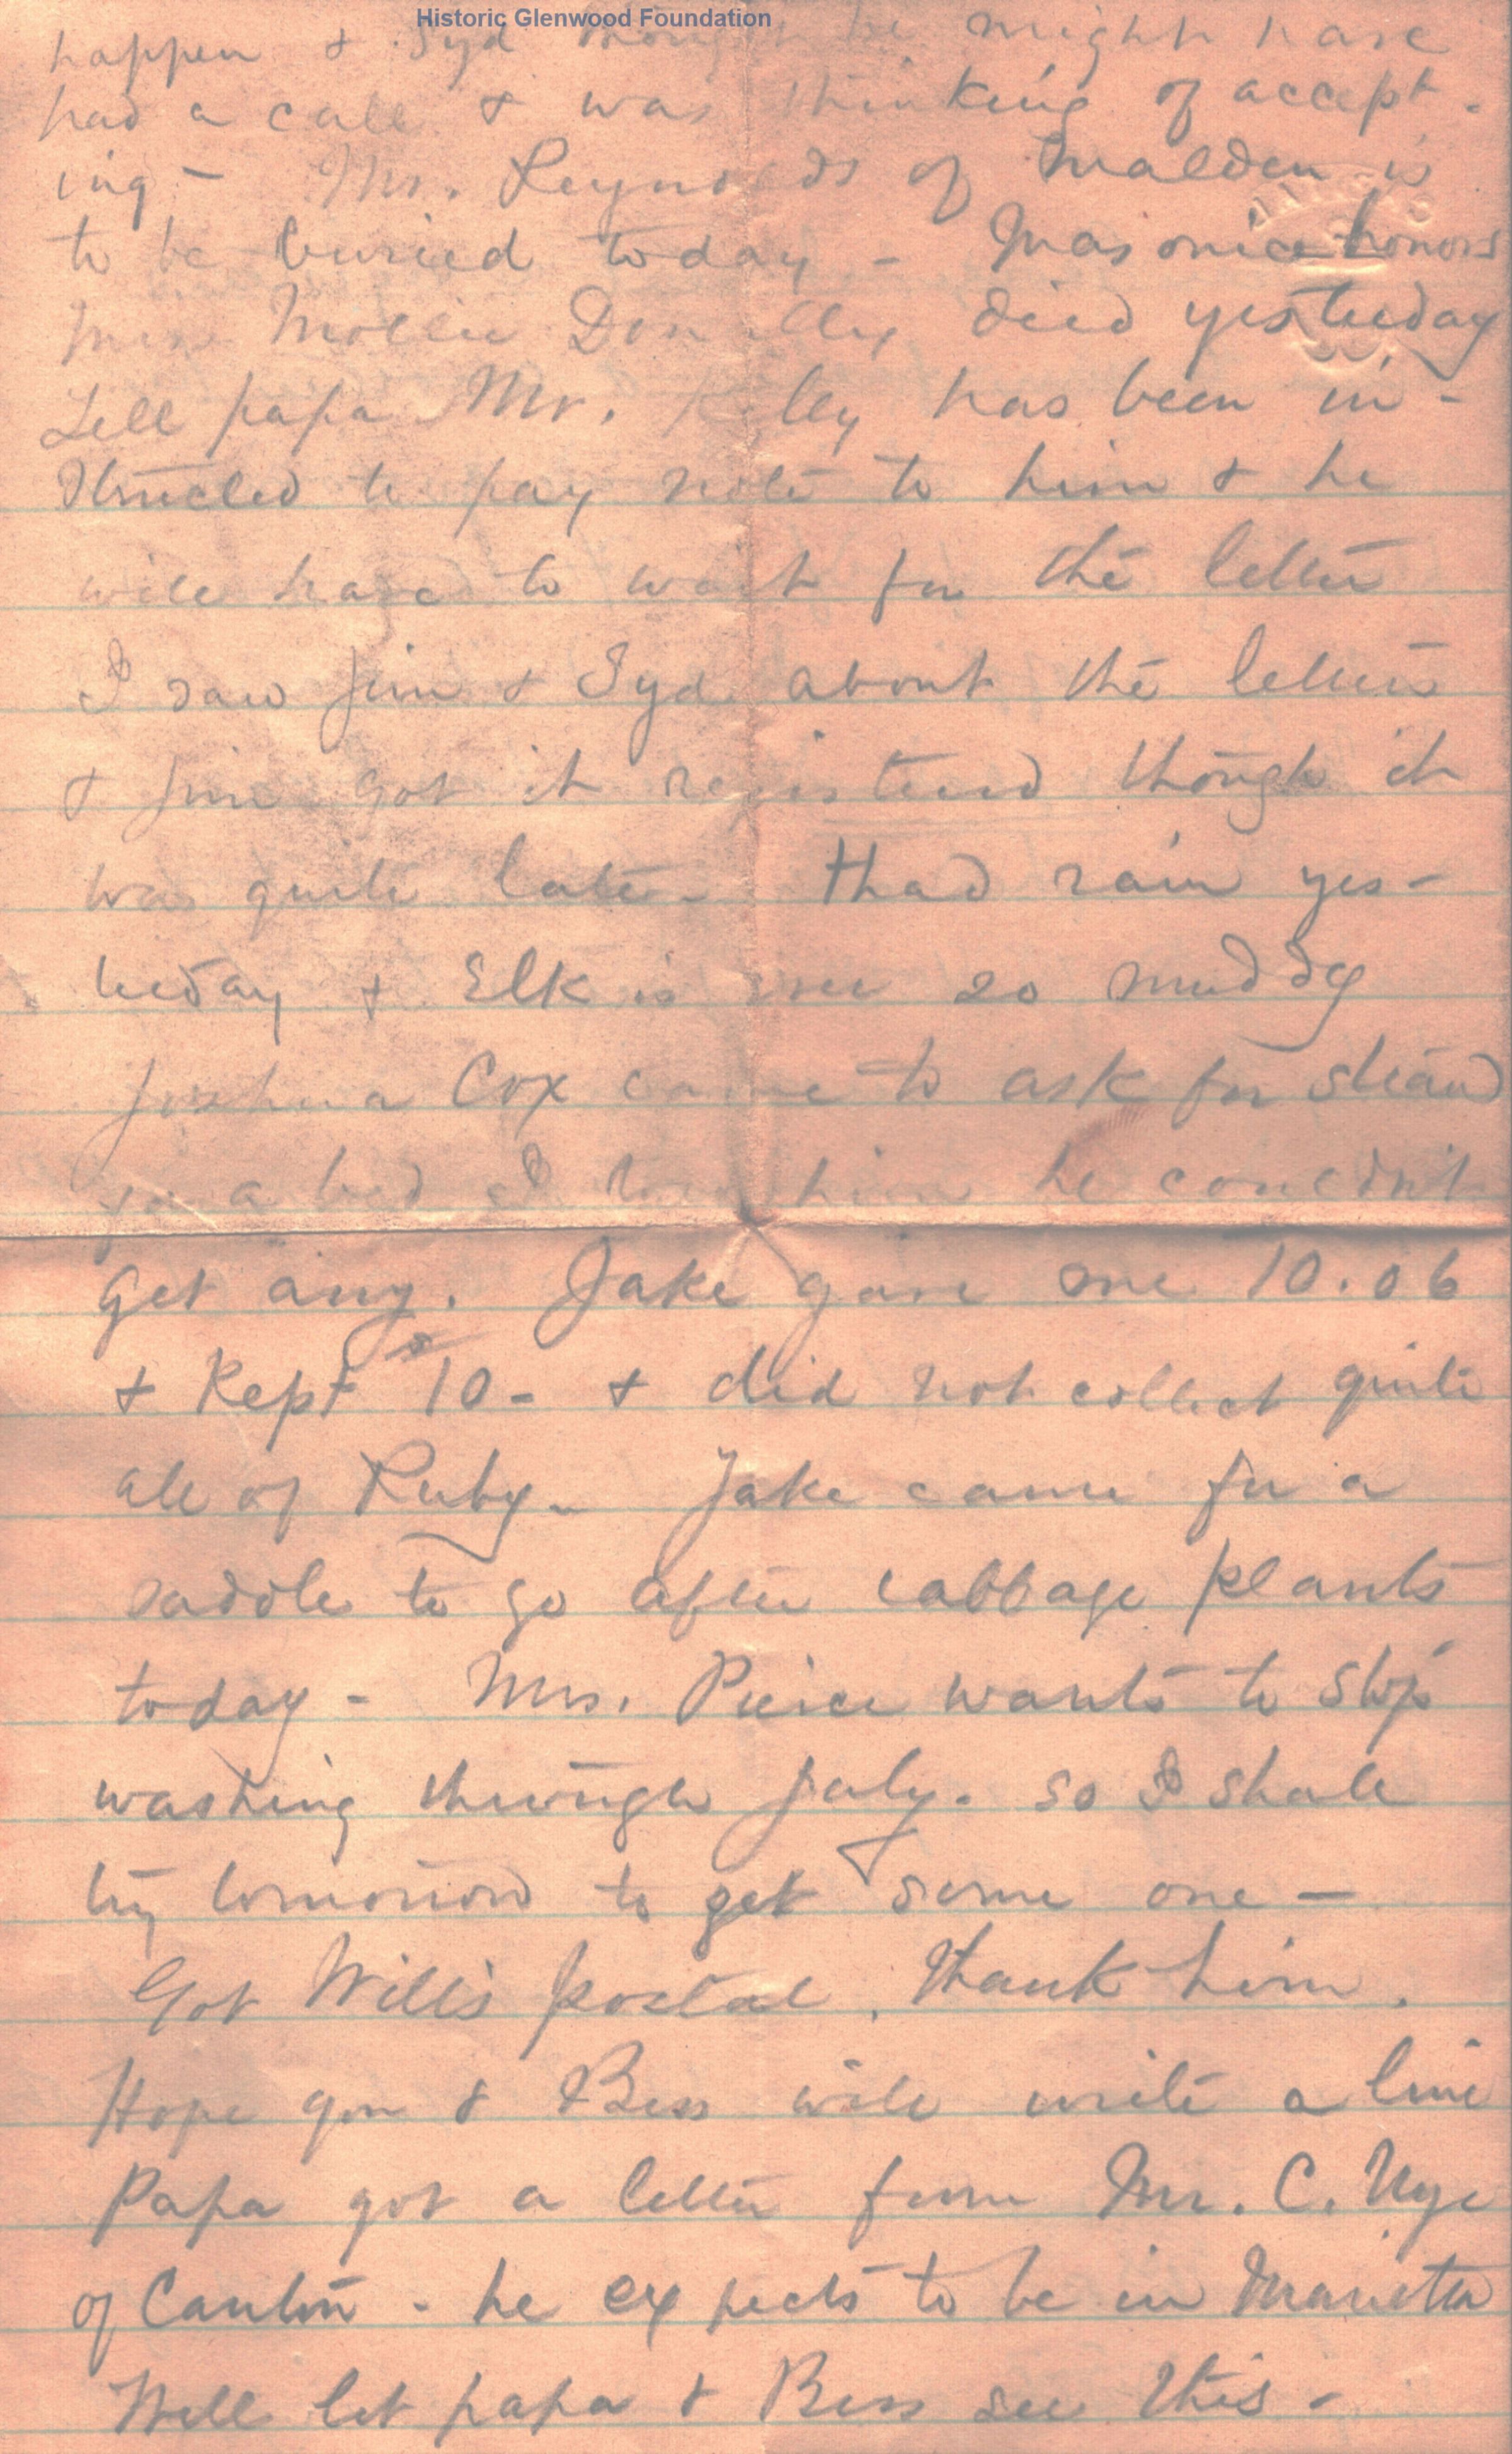 Historic Glenwood Foundation
happen & Syd thought he might have
had a call & was thinking of accept-
ing - Mr. Reynolds of Malden is
to be buried today - Masonic honors
Miss Mollie Donnally died yesterday
Tell papa Mr. has been in-
structed to pay note to him & he
will have to wait for the letter
I saw Jim & Syd about the letters
& Jim got it registered though it
was quite late - had rain yes-
terday & Elk is ever so muddy
Joshua Cox came to ask for straw
for a bed I told him he couldn't
get any. Jake gave me 10.06
& Kept $10 - & did not collect quite
all of Ruby - Jake came for a
saddle to go after cabbage plants
today - Mrs. Pierce wants to stop
washing through July. so I shall
try tomorrow to get some one -
Got Will's postal. Thank him.
Hope you & Bess will write a line
Papa got a letter from Mr. C. Nye
of Canton - he expects to be in Marietta
Will let papa & Bess see this -